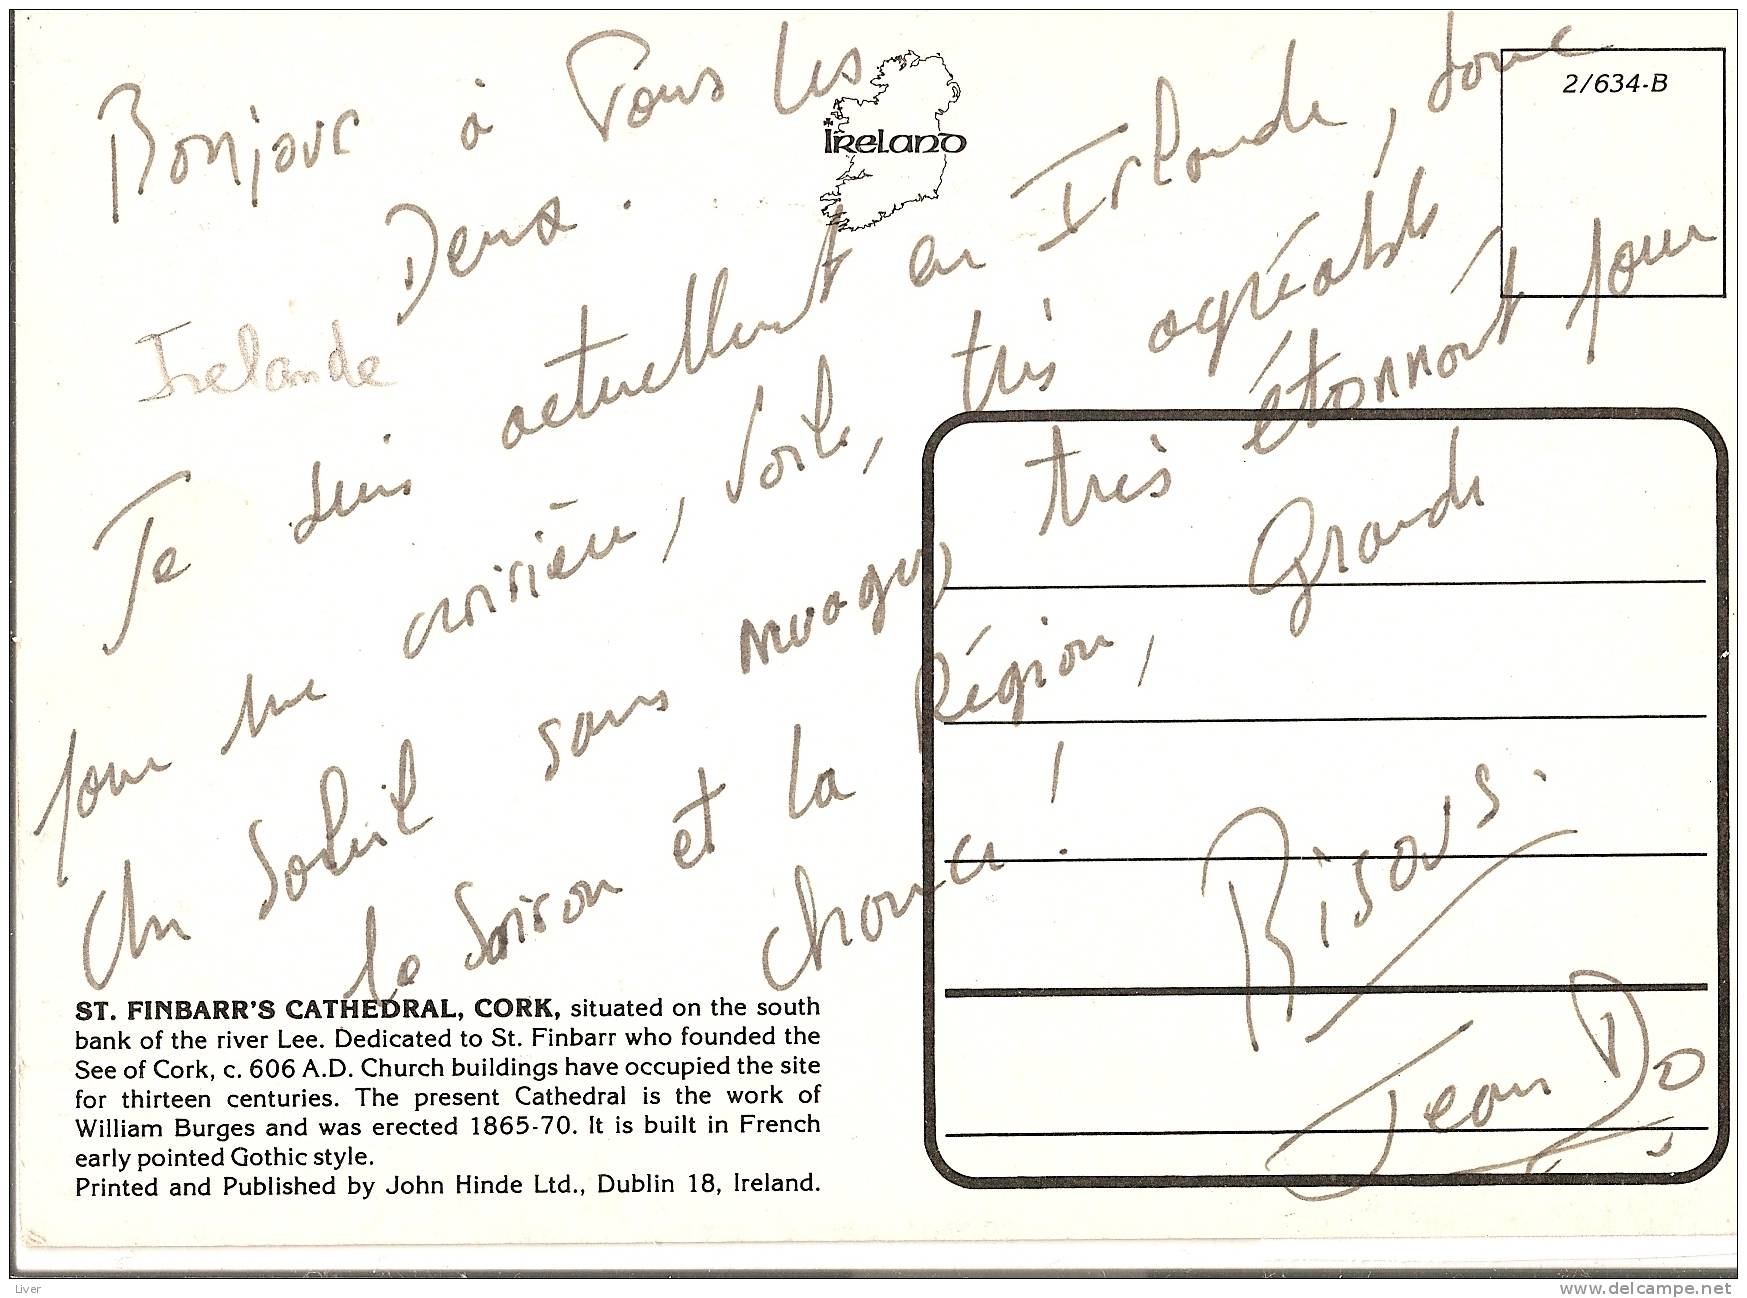 Bonjour à Tous les
Deux.
IRELAND
2/634-B
Irelande
Je suis actuellement en Irlande, donc
pour une croisière, voile, très agréable
Un Soleil sans nuages, très étonnant pour
la Saison et la Région, Grande
chance !
Bisous.
Jean Do
ST. FINBARR'S CATHEDRAL, CORK, situated on the south
bank of the river Lee. Dedicated to St. Finbarr who founded the
See of Cork, c. 606 A.D. Church buildings have occupied the site
for thirteen centuries. The present Cathedral is the work of
William Burges and was erected 1865-70. It is built in French
early pointed Gothic style.
Printed and Published by John Hinde Ltd., Dublin 18, Ireland.
Liver
www.delcampe.net